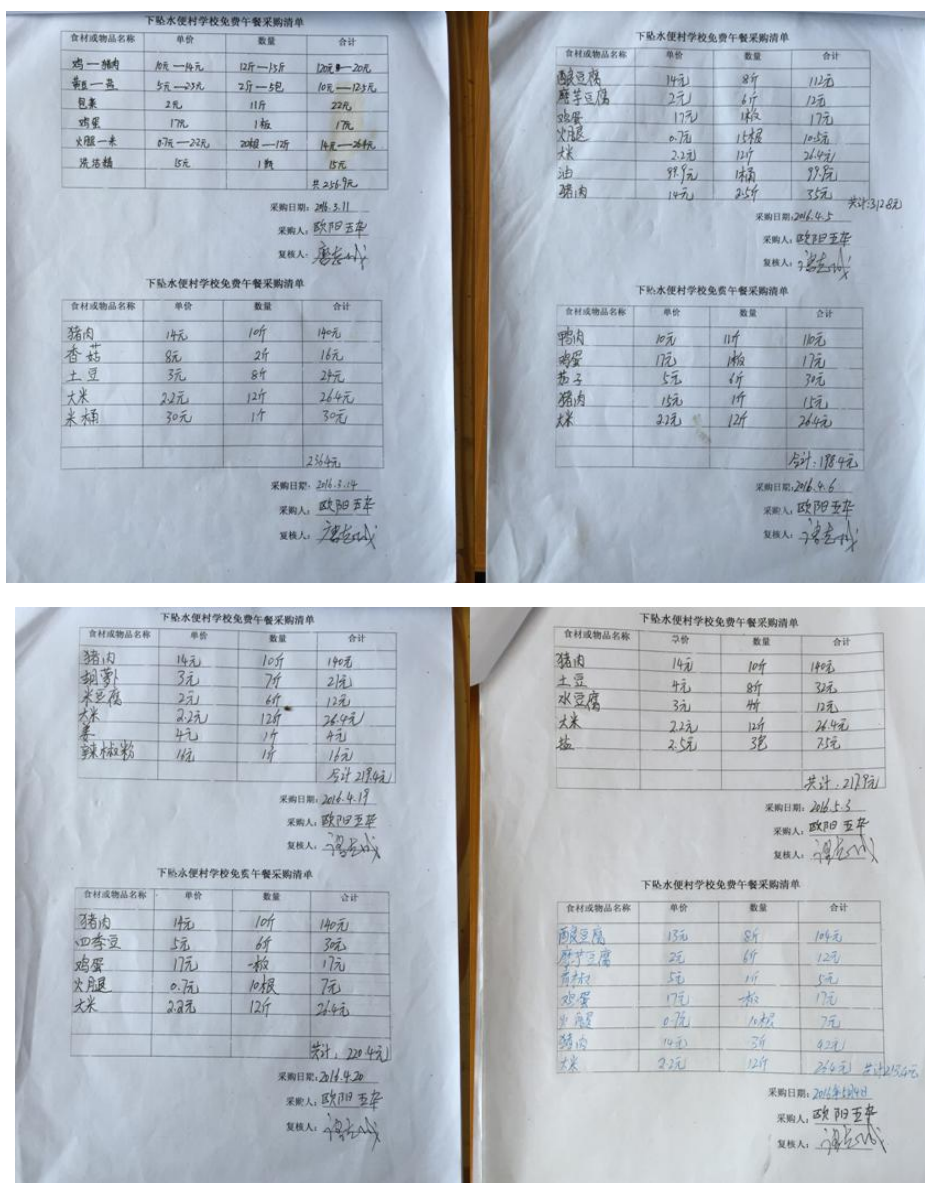 下坠水便村学校免费午餐采购清单
食材或物品名称 单价 数量 合计
鸡一猪肉 10元一14元 12斤一15斤 120元一20元
5元一2.5元 2斤一5包 10元一12.5元
包菜 2元 11斤 22元
鸡蛋 17元 1板 17元
火腿一米 0.7元一2.2元 20根一12斤 14元一26.4元
洗洁精 15元 1瓶 15元
共256.9元
采购日期：2016.3.11
采购人：欧阳五华
复核人：
下坠水便村学校免费午餐采购清单
食材或物品名称 单价 数量 合计
猪肉 14元 10斤 140元
香菇 8元 2斤 16元
土豆 3元 8斤 24元
大米 2.2元 12斤 26.4元
米桶 30元 1个 30元
236.4元
采购日期：2016.3.14
采购人：欧阳五华
复核人：
下坠水便村学校免费午餐采购清单
食材或物品名称 单价 数量 合计
酿豆腐 14元 8斤 112元
魔芋豆腐 2元 6斤 12元
鸡蛋 17元 1板 17元
火腿 0.7元 15根 10.5元
大米 2.2元 12斤 26.4元
油 99.9元 1桶 99.9元
猪肉 14元 2.5斤 35元
共计:312.8元
采购日期：2016.4.5
采购人：欧阳五华
复核人：
下坠水便村学校免费午餐采购清单
食材或物品名称 单价 数量 合计
鸭肉 10元 11斤 110元
鸡蛋 17元 1板 17元
茄子 5元 6斤 30元
猪肉 15元 1斤 15元
大米 2.2元 12斤 26.4元
合计:198.4元
采购日期：2016.4.6
采购人：欧阳五华
复核人：
下坠水便村学校免费午餐采购清单
食材或物品名称 单价 数量 合计
猪肉 14元 10斤 140元
胡萝卜 3元 7斤 21元
米豆腐 2元 6斤 12元
大米 2.2元 12斤 26.4元
姜 4元 1斤 4元
辣椒粉 16元 1斤 16元
合计219.4元
采购日期：2016.4.19
采购人：欧阳五华
复核人：
下坠水便村学校免费午餐采购清单
食材或物品名称 单价 数量 合计
猪肉 14元 10斤 140元
四季豆 5元 6斤 30元
鸡蛋 17元 一板 17元
火腿 0.7元 10根 7元
大米 2.2元 12斤 26.4元
共计：220.4元
采购日期：2016.4.20
采购人：欧阳五华
复核人：
下坠水便村学校免费午餐采购清单
食材或物品名称 单价 数量 合计
猪肉 14元 10斤 140元
土豆 4元 8斤 32元
水豆腐 3元 4斤 12元
大米 2.2元 12斤 26.4元
盐 2.5元 3包 7.5元
共计：217.9元
采购日期：2016.5.3
采购人：欧阳五华
复核人：
下坠水便村学校免费午餐采购清单
食材或物品名称 单价 数量 合计
酿豆腐 13元 8斤 104元
魔芋豆腐 2元 6斤 12元
青椒 5元 1斤 5元
鸡蛋 17元 一板 17元
火腿 0.7元 10根 7元
猪肉 14元 3斤 42元
大米 2.2元 12斤 26.4元 共计213.4元
采购日期：2016年5月4日
采购人：欧阳五华
复核人：